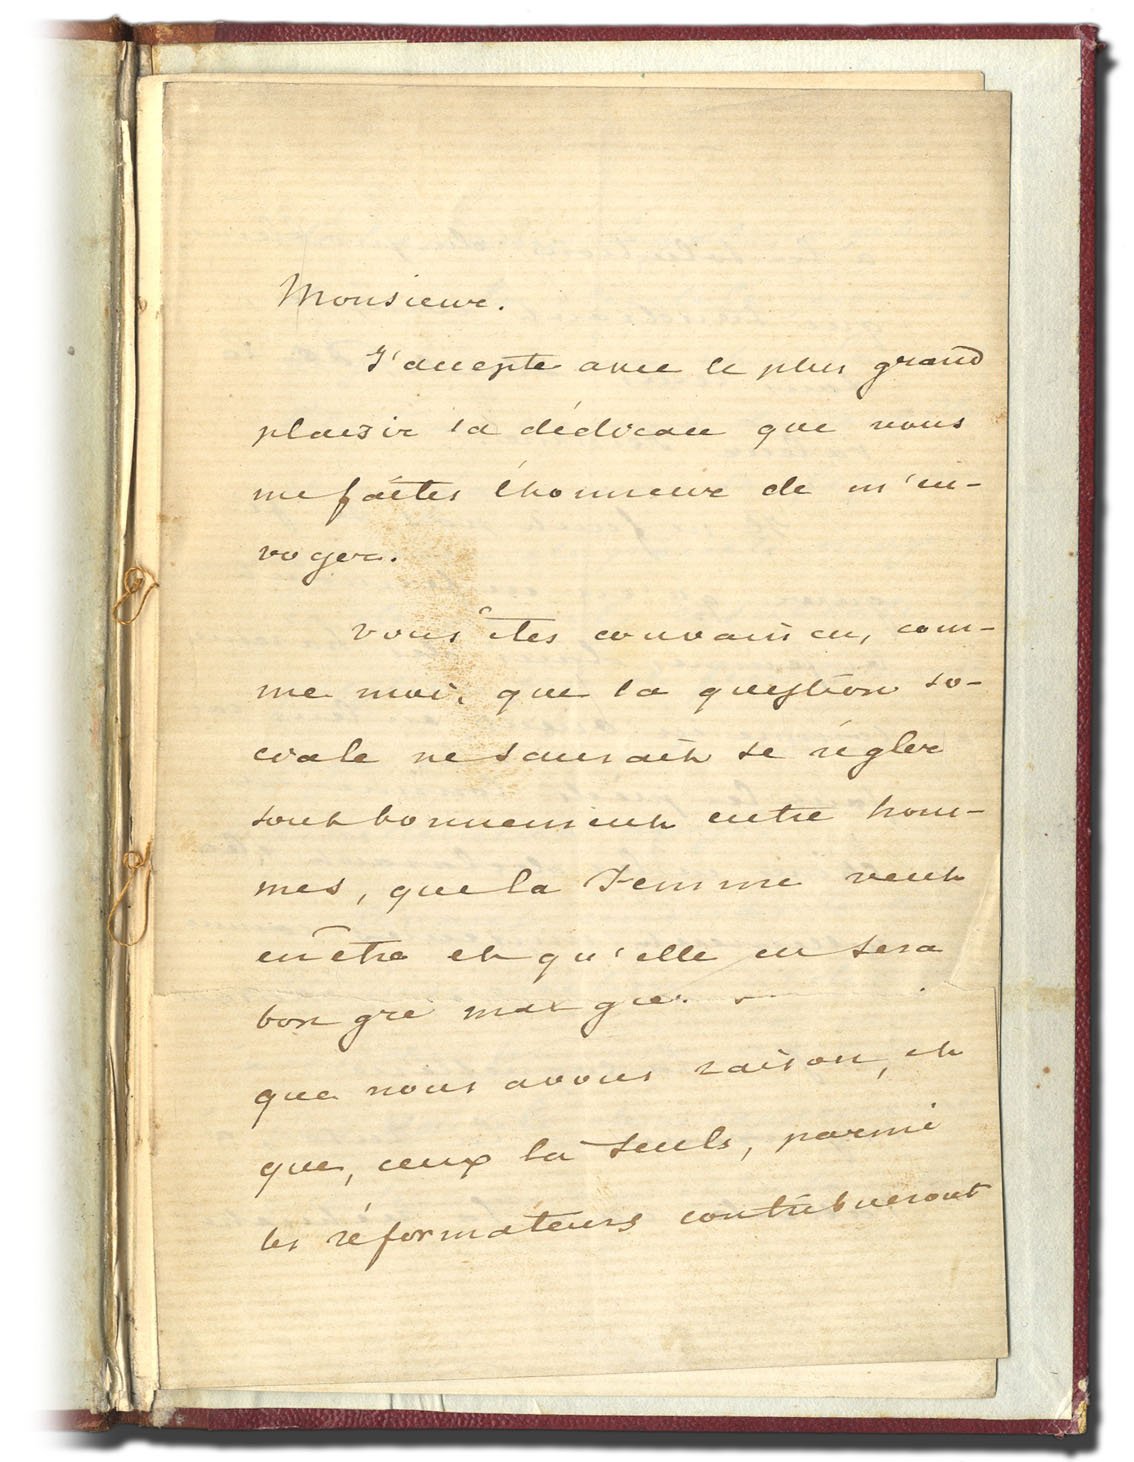 Monsieur.
J'accepte avec le plus grand
plaisir la dédicace que vous
me faîtes l'honneur de m'en-
voyer.
Vous êtes convaincu, com-
me moi, que la question so-
ciale ne saurait se régler
tout bonnement entre hom-
mes, que la Femme veut
en être et qu'elle en sera
bon gré mal gré. —
que nous avons raison, et
que, ceux là seuls, parmi
les réformateurs contribueront